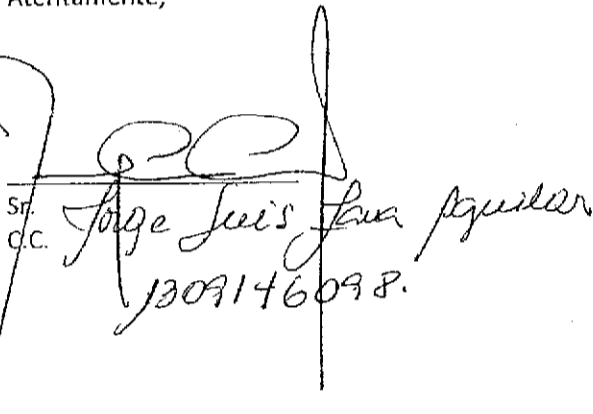 Atentamente,
Sr. Jorge Luis Java Aguilar
C.C. 1309146098.